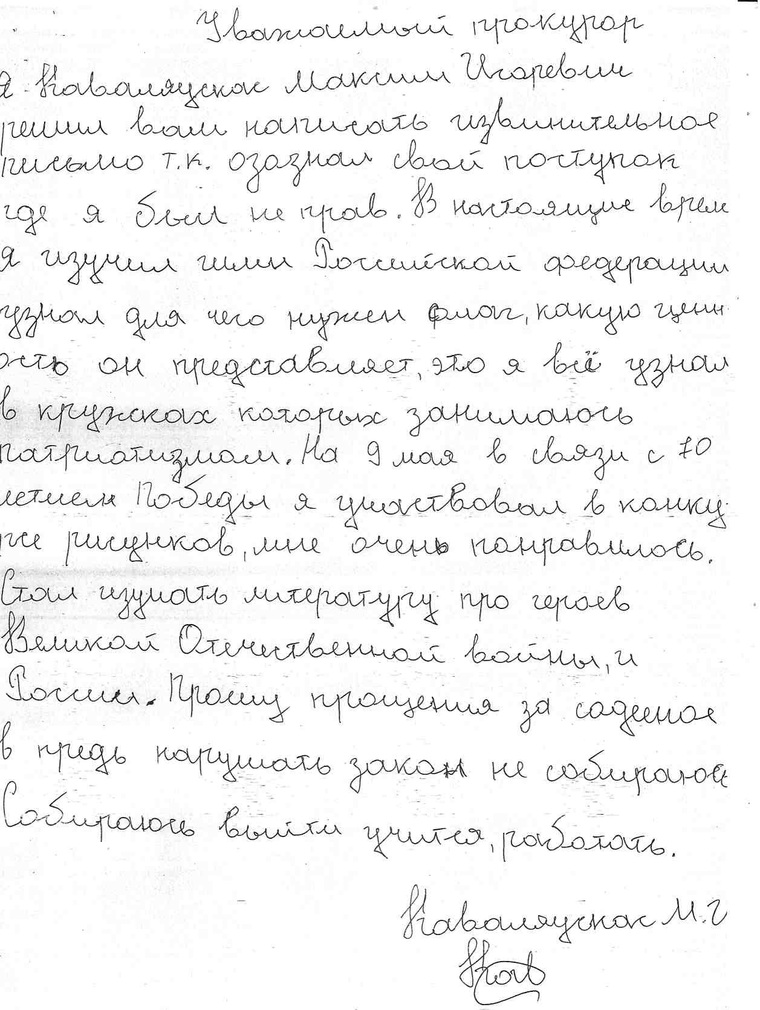 Уважаемый прокурор
Я Каваляускас Максим Игоревич
решил вам написать извинительное
письмо т.к. озазнал свой поступок
где я был не прав. В настоящие врем
я изучил гимн Российской федерации
узнал для чего нужен флаг, какую ценн
ость он представляет, это я всё узнал
в кружках которых занимаюсь
патриотизмом. На 9 мая в связи с 70
летием Победы я участвовал в конку
рсе рисунков, мне очень понравилось.
Стал изучать литературу про героев
Великой Отечественной войны, и
России. Прошу прощения за
в предь нарушать закон не собираюсь
Собираюсь выйти учится, работать.
Каваляускас М.И
Кав